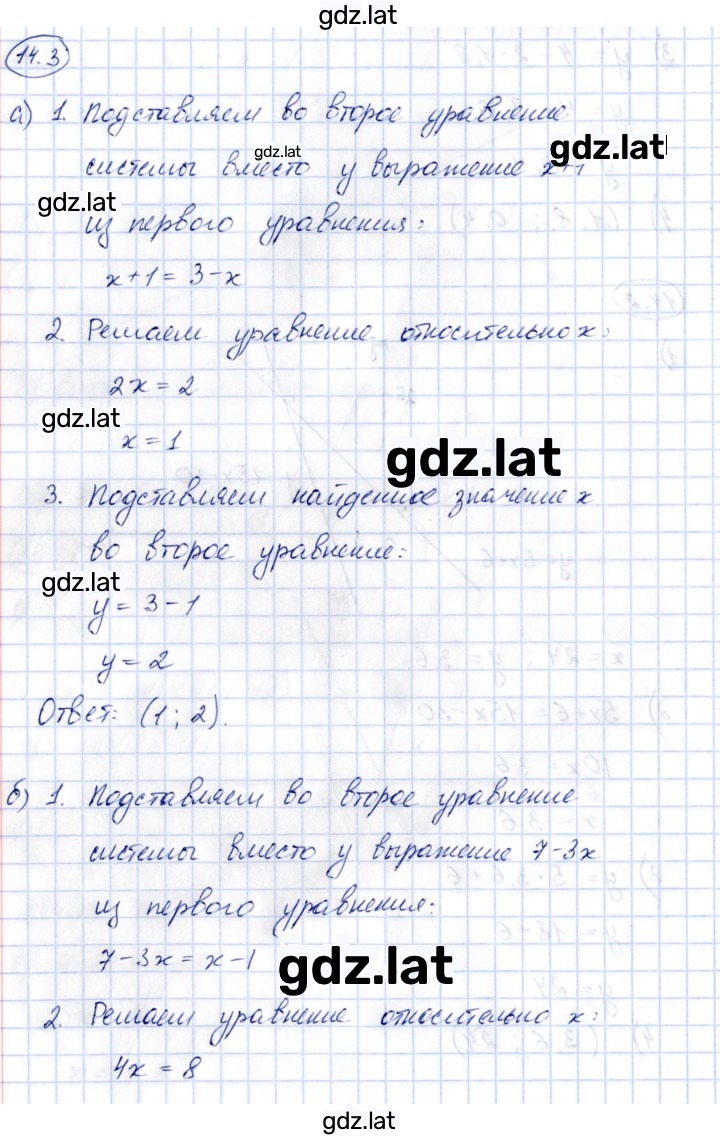 gdz.lat
14.3
а) 1. Подставляем во второе уравнение
gdz.lat
gdz.lat
системы вместо у выражение х+1
gdz.lat
из первого уравнения:
x+1 = 3-x
2. Решаем уравнение относительно x:
2x = 2
gdz.lat
x = 1
gdz.lat
3. Подставляем найденное значение x
во второе уравнение:
gdz.lat
y = 3-1
y = 2
Ответ: (1; 2).
б) 1. Подставляем во второе уравнение
системы вместо у выражение 7-3x
из первого уравнения:
7-3x = x-1
gdz.lat
2. Решаем уравнение относительно x:
4x = 8
gdz.lat